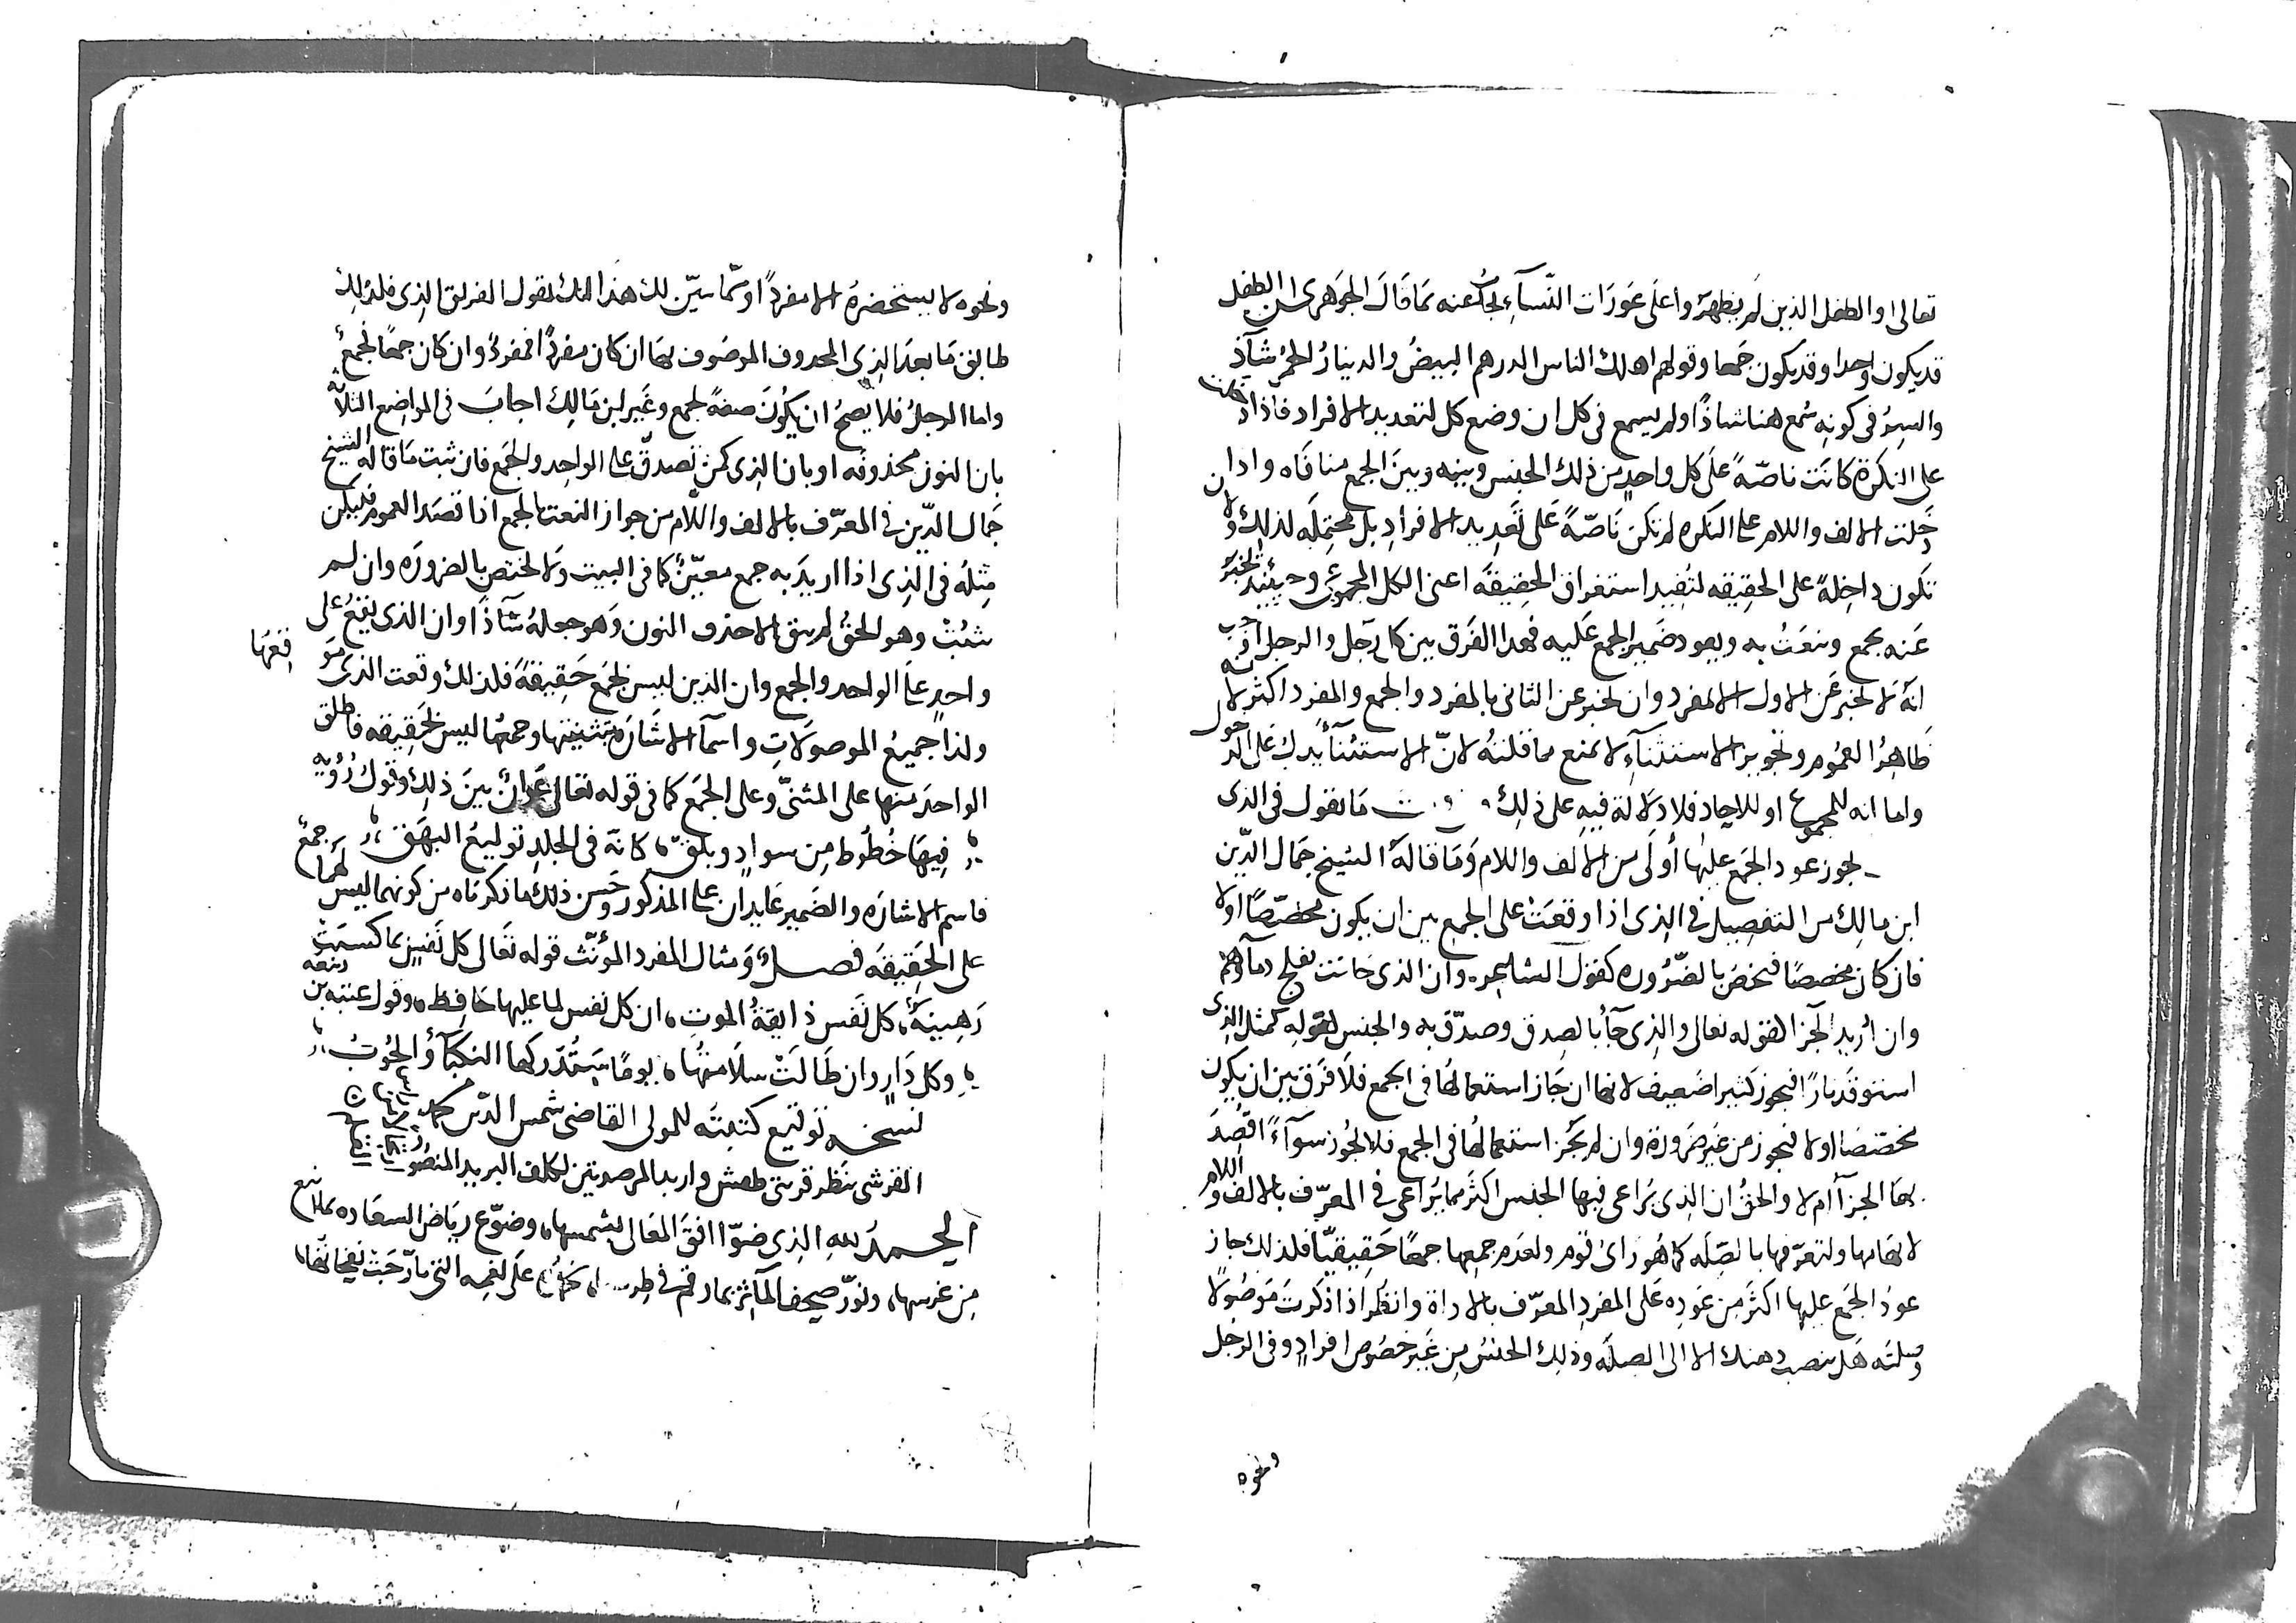 تعالى او الطفل الذين لم يظهروا على عورات النساء يجاب عنه بما قال الجوهرى ان الطفل
قد يكون واحدا وقد يكون جمعا وقولهم اهلك الناس الدرهم البيض والدينار الحمر شاذ
والسر فى كونه سمع هنا شاذا ولم يسمع فى كل ان وضع كل لتعديد الافراد فاذا دخلت
على النكرة كانت ناصة على كل واحد من ذلك الجنس وبينه وبين الجمع منافاه واذا
دخلت الالف واللام على النكره لم تكن ناصة على تعديد الافراد بل محتمله لذلك ولان
تكون داخلة على الحقيقه لتفيد استغراق الحقيقه اعنى الكل المجموعى وحينئذ يخبر
عنه بجمع وينعت به ويعود ضمير الجمع عليه فهذا الفرق بين كل رجل والرجل
انه لا يخبر عن الاول الا بمفرد وان يخبر عن الثانى بالمفرد والجمع والمفرد اكثر لانه
ظاهر العموم وتجويز الاستثناء لا يمنع ما قلته لان الاستثناء يدل على الدخول
واما انه للمجموع او للاحاد فلا دلالة فيه على ذلك ما يقول فى الذى
يجوز عود الجمع عليها أولى من الالف واللام وما قاله الشيخ جمال الدين
ابن مالك من التفصيل فى الذى اذا وقعت على الجمع بين ان يكون مخصصا او لا
فان كان مخصصا فيخص بالضروره كقول الشاعر وان الذى حانت بفلج دماؤهم
وان أريد الجزا لقوله تعالى والذى جاء بالصدق وصدق به والجنس لقوله كمثل الذى
استوقد نارا فيجوز كثيرا ضعيف لانها ان جاز استعمالها فى الجمع فلا فرق بين ان يكون
مخصصا او لا فيجوز من غير ضرورة وان لم يجز استعمالها فى الجمع فلا يجوز سواء اقصد
بها الجزا أم لا والحق ان الذى يراعى فيها الجنس اكثر مما يراعى فى المعرف بالالف واللام
لابهامها ولتعرفها بالصله كما هو راى قوم ولعدم جمعها جمعا حقيقيا فلذلك جاز
عود الجمع عليها اكثر من عوده على المفرد المعرف بالاداة وانظر اذا ذكرت موصولا
وصلته هل ينصب ذهنك الا الى الصله وذلك الجنس من غير خصوص افراد وفى الرجل
ونحوه
ونحوه لا يستحضره الا مفردا ومما يبين لك هذا انك تقول الفريق الذى فلذلك
طابق ما بعد الذى المحذوف الموصوف بها ان كان مفردا فمفرد وان كان جمعا فجمع
واما الرجل فلا يصح ان يكون صفة لجمع وغير ابن مالك اجاب فى المواضع الثلاثه
بان النون محذوفه او بان الذى كمن تصدق على الواحد والجمع فان ثبت ما قاله الشيخ
جمال الدين فى المعرف بالالف واللام من جواز النعت بالجمع اذا قصد العموم فليكن
مثله فى الذى اذا اريد به جمع معين كما فى البيت ولا يختص بالضروره وان لم
يثبت وهو الحق لم يبق الا حذف النون وهو جعله شاذا وان الذى يقع على
واحد على الواحد والجمع وان الذين ليس بجمع حقيقة فلذلك وقعت الذى مو
قعها
ولذا جميع الموصولات واسماء الاشاره تثنيتها وجمعها ليس بحقيقه فاطلق
الواحد منها على المثنى وعلى الجمع كما فى قوله تعالى عوان بين ذلك وقول رؤبه
فيها خطوط من سواد وبلق كانه فى الجلد توليع البهق
فاسم الاشاره والضمير عايدان على المذكور وحسن ذلك ما ذكرناه من كونهما ليس لهما جمع
على الحقيقه فصل ومثال المفرد المؤنث قوله تعالى كل نفس بما كسبت
رهينة، كل نفس ذايقة الموت، ان كل نفس لما عليها حافظ، وقول عتبه بن ربيعه
وكل دار وان طالت سلامتها، يوما ستدركها النكباء والحوب
نسخه توقيع كتبته للمولى القاضى شمس الدين محمد
القرشى بنظر قريتى طفس واربد المرصدتين لكلف البريد المنصور
الحمد لله الذى ضوا افق المعالى بشمسها، وضوع رياض السعاده بما ينع
من غرسها، ونور صحف المآثر بما رقم فى على نعمه التى تأرجت نفحاتها،